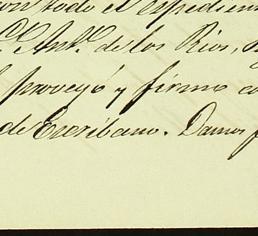 con todo el expedien
C. Ant.º de los Rios,
proveyó y firmo co
de Escribano. Damos f